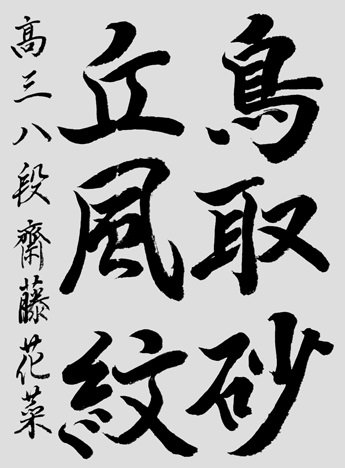 鳥取砂
丘風紋
高三八段齋藤花菜